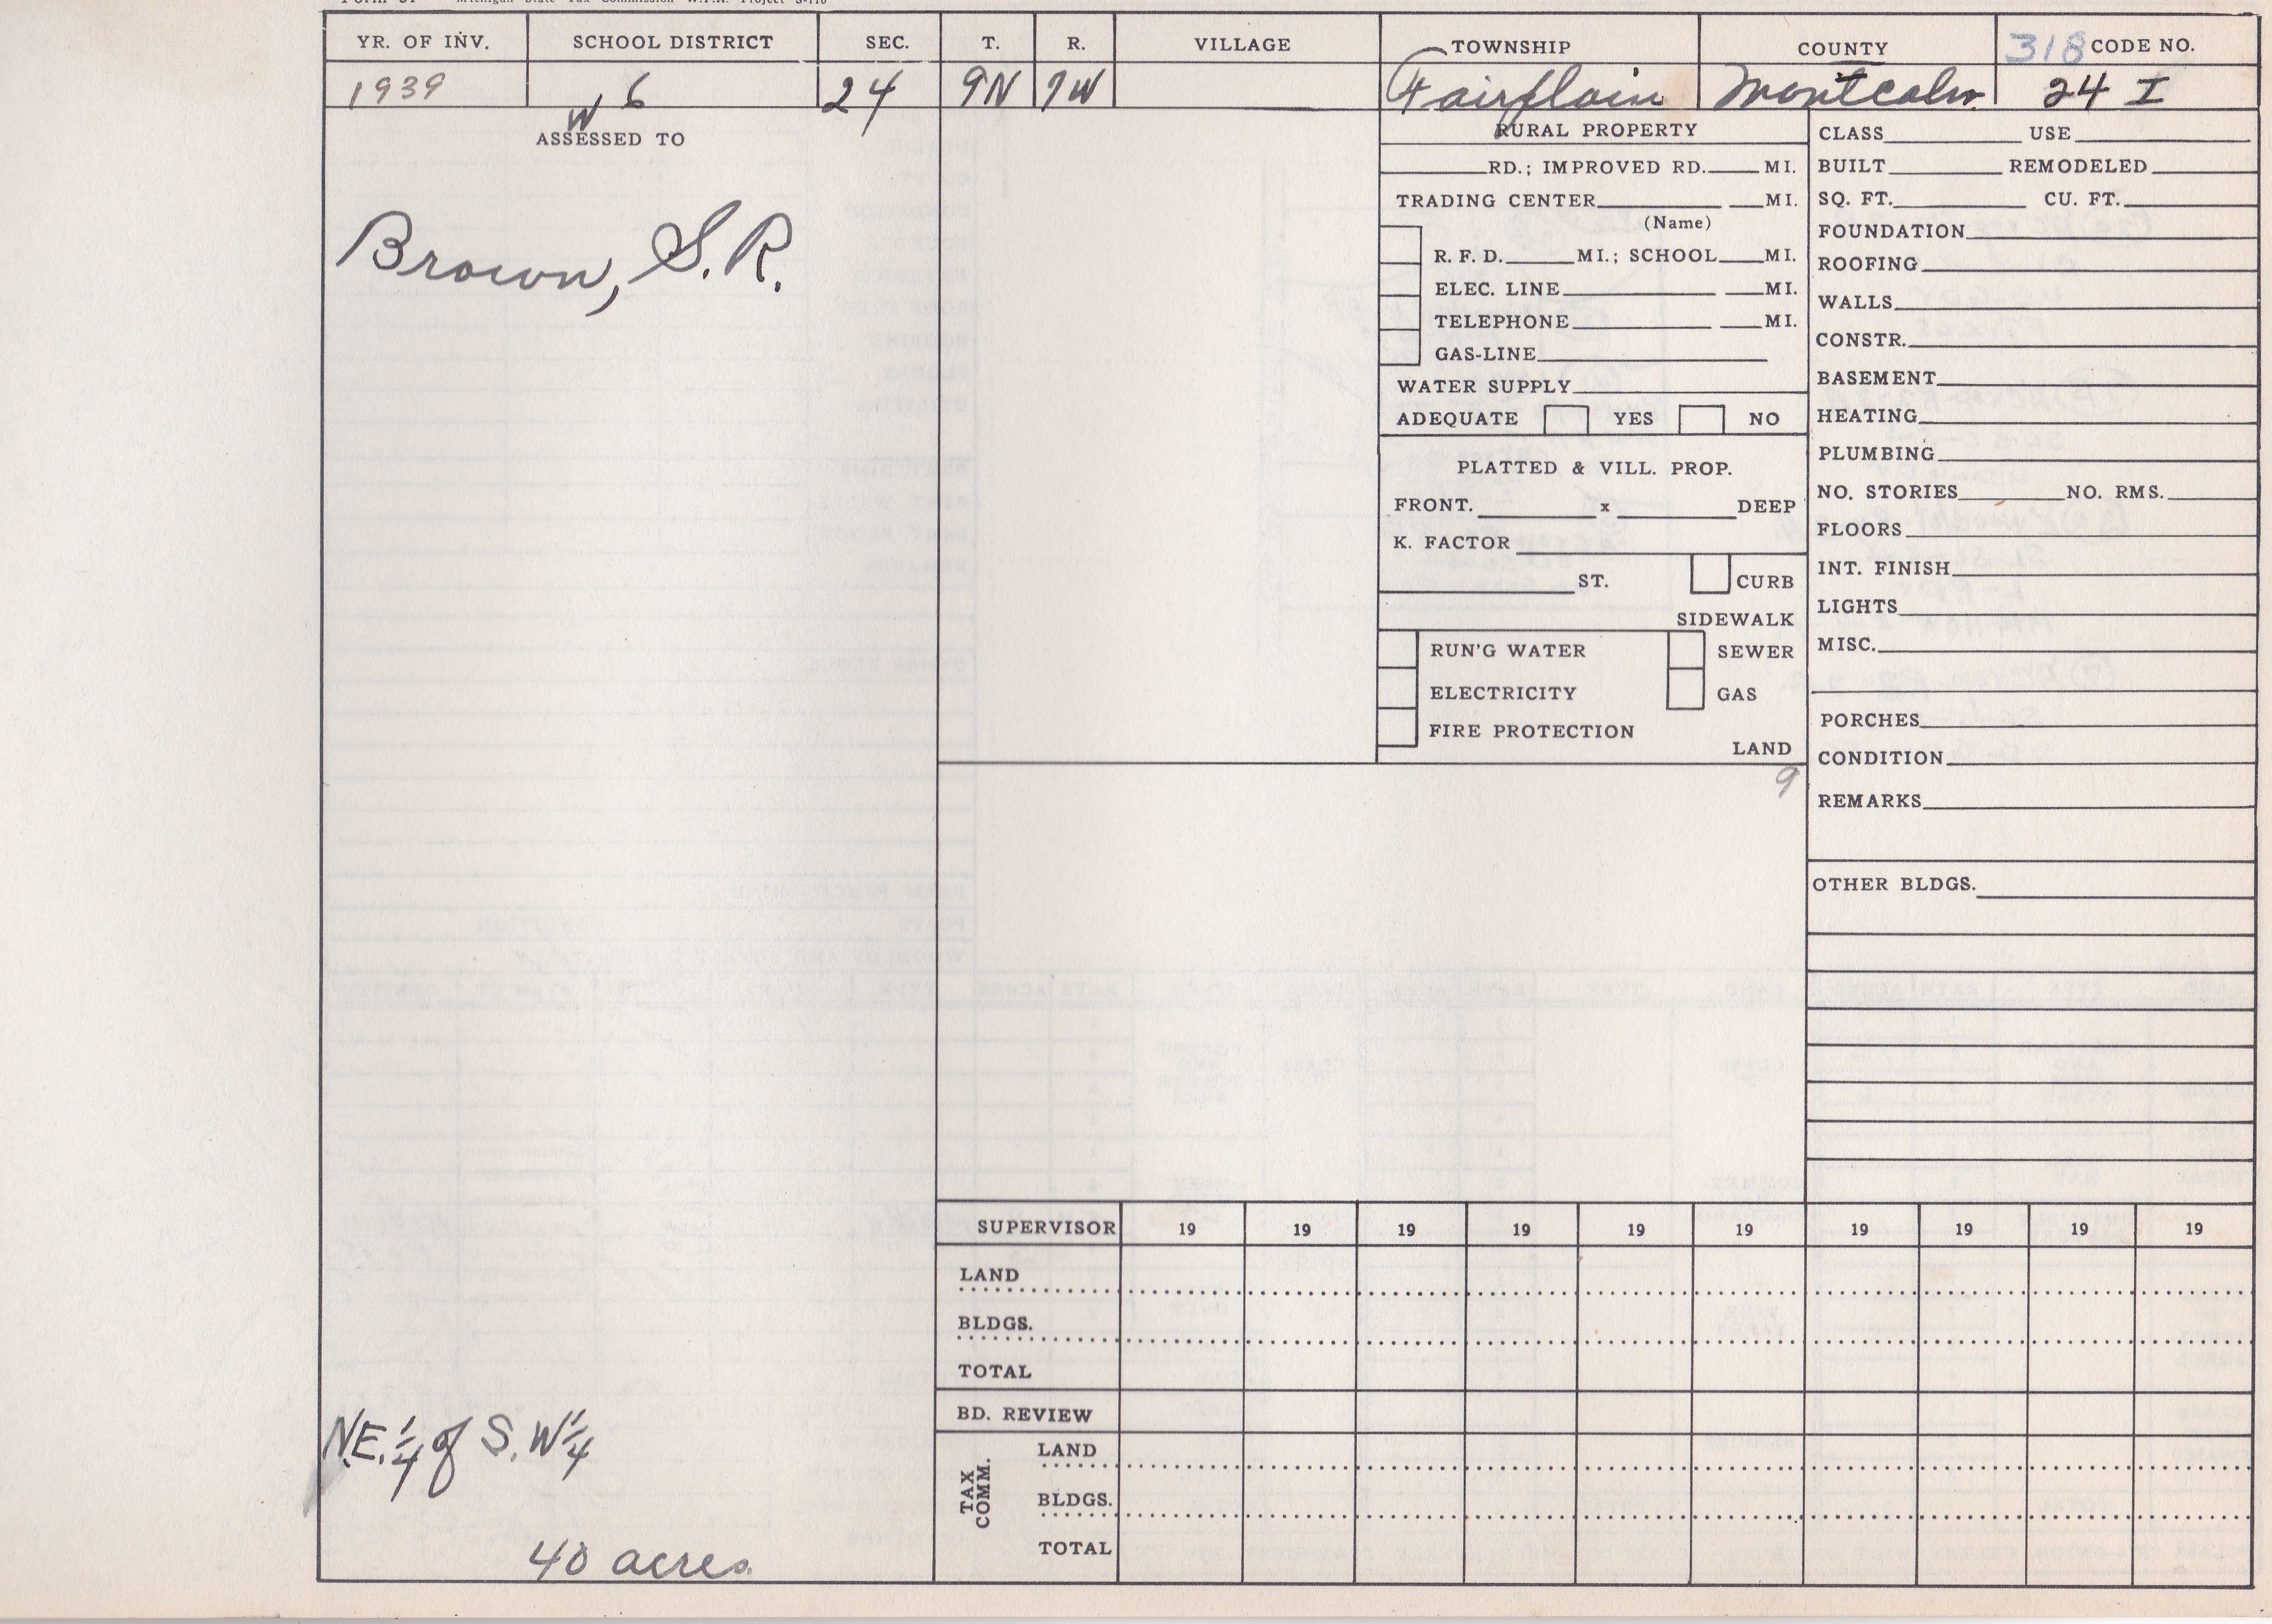 Form 51 Michigan State Tax Commission W.P.A. Project S-116
YR. OF INV. SCHOOL DISTRICT SEC. T. R. VILLAGE TOWNSHIP COUNTY 318 CODE NO.
1939 W 6 24 9N 7W Fairplain Montcalm 24 I
ASSESSED TO
Brown, S.R.
N.E. 1/4 of S.W 1/4
40 acres
RURAL PROPERTY
RD.; IMPROVED RD. MI.
TRADING CENTER MI.
(Name)
R. F. D. MI.; SCHOOL MI.
ELEC. LINE MI.
TELEPHONE MI.
GAS-LINE
WATER SUPPLY
ADEQUATE YES NO
PLATTED & VILL. PROP.
FRONT. x DEEP
K. FACTOR
ST. CURB
SIDEWALK
RUN'G WATER SEWER
ELECTRICITY GAS
FIRE PROTECTION
LAND
9
CLASS USE
BUILT REMODELED
SQ. FT. CU. FT.
FOUNDATION
ROOFING
WALLS
CONSTR.
BASEMENT
HEATING
PLUMBING
NO. STORIES NO. RMS.
FLOORS
INT. FINISH
LIGHTS
MISC.
PORCHES
CONDITION
REMARKS
OTHER BLDGS.
SUPERVISOR 19 19 19 19 19 19 19 19 19 19
LAND
BLDGS.
TOTAL
BD. REVIEW
TAX COMM.
LAND
BLDGS.
TOTAL